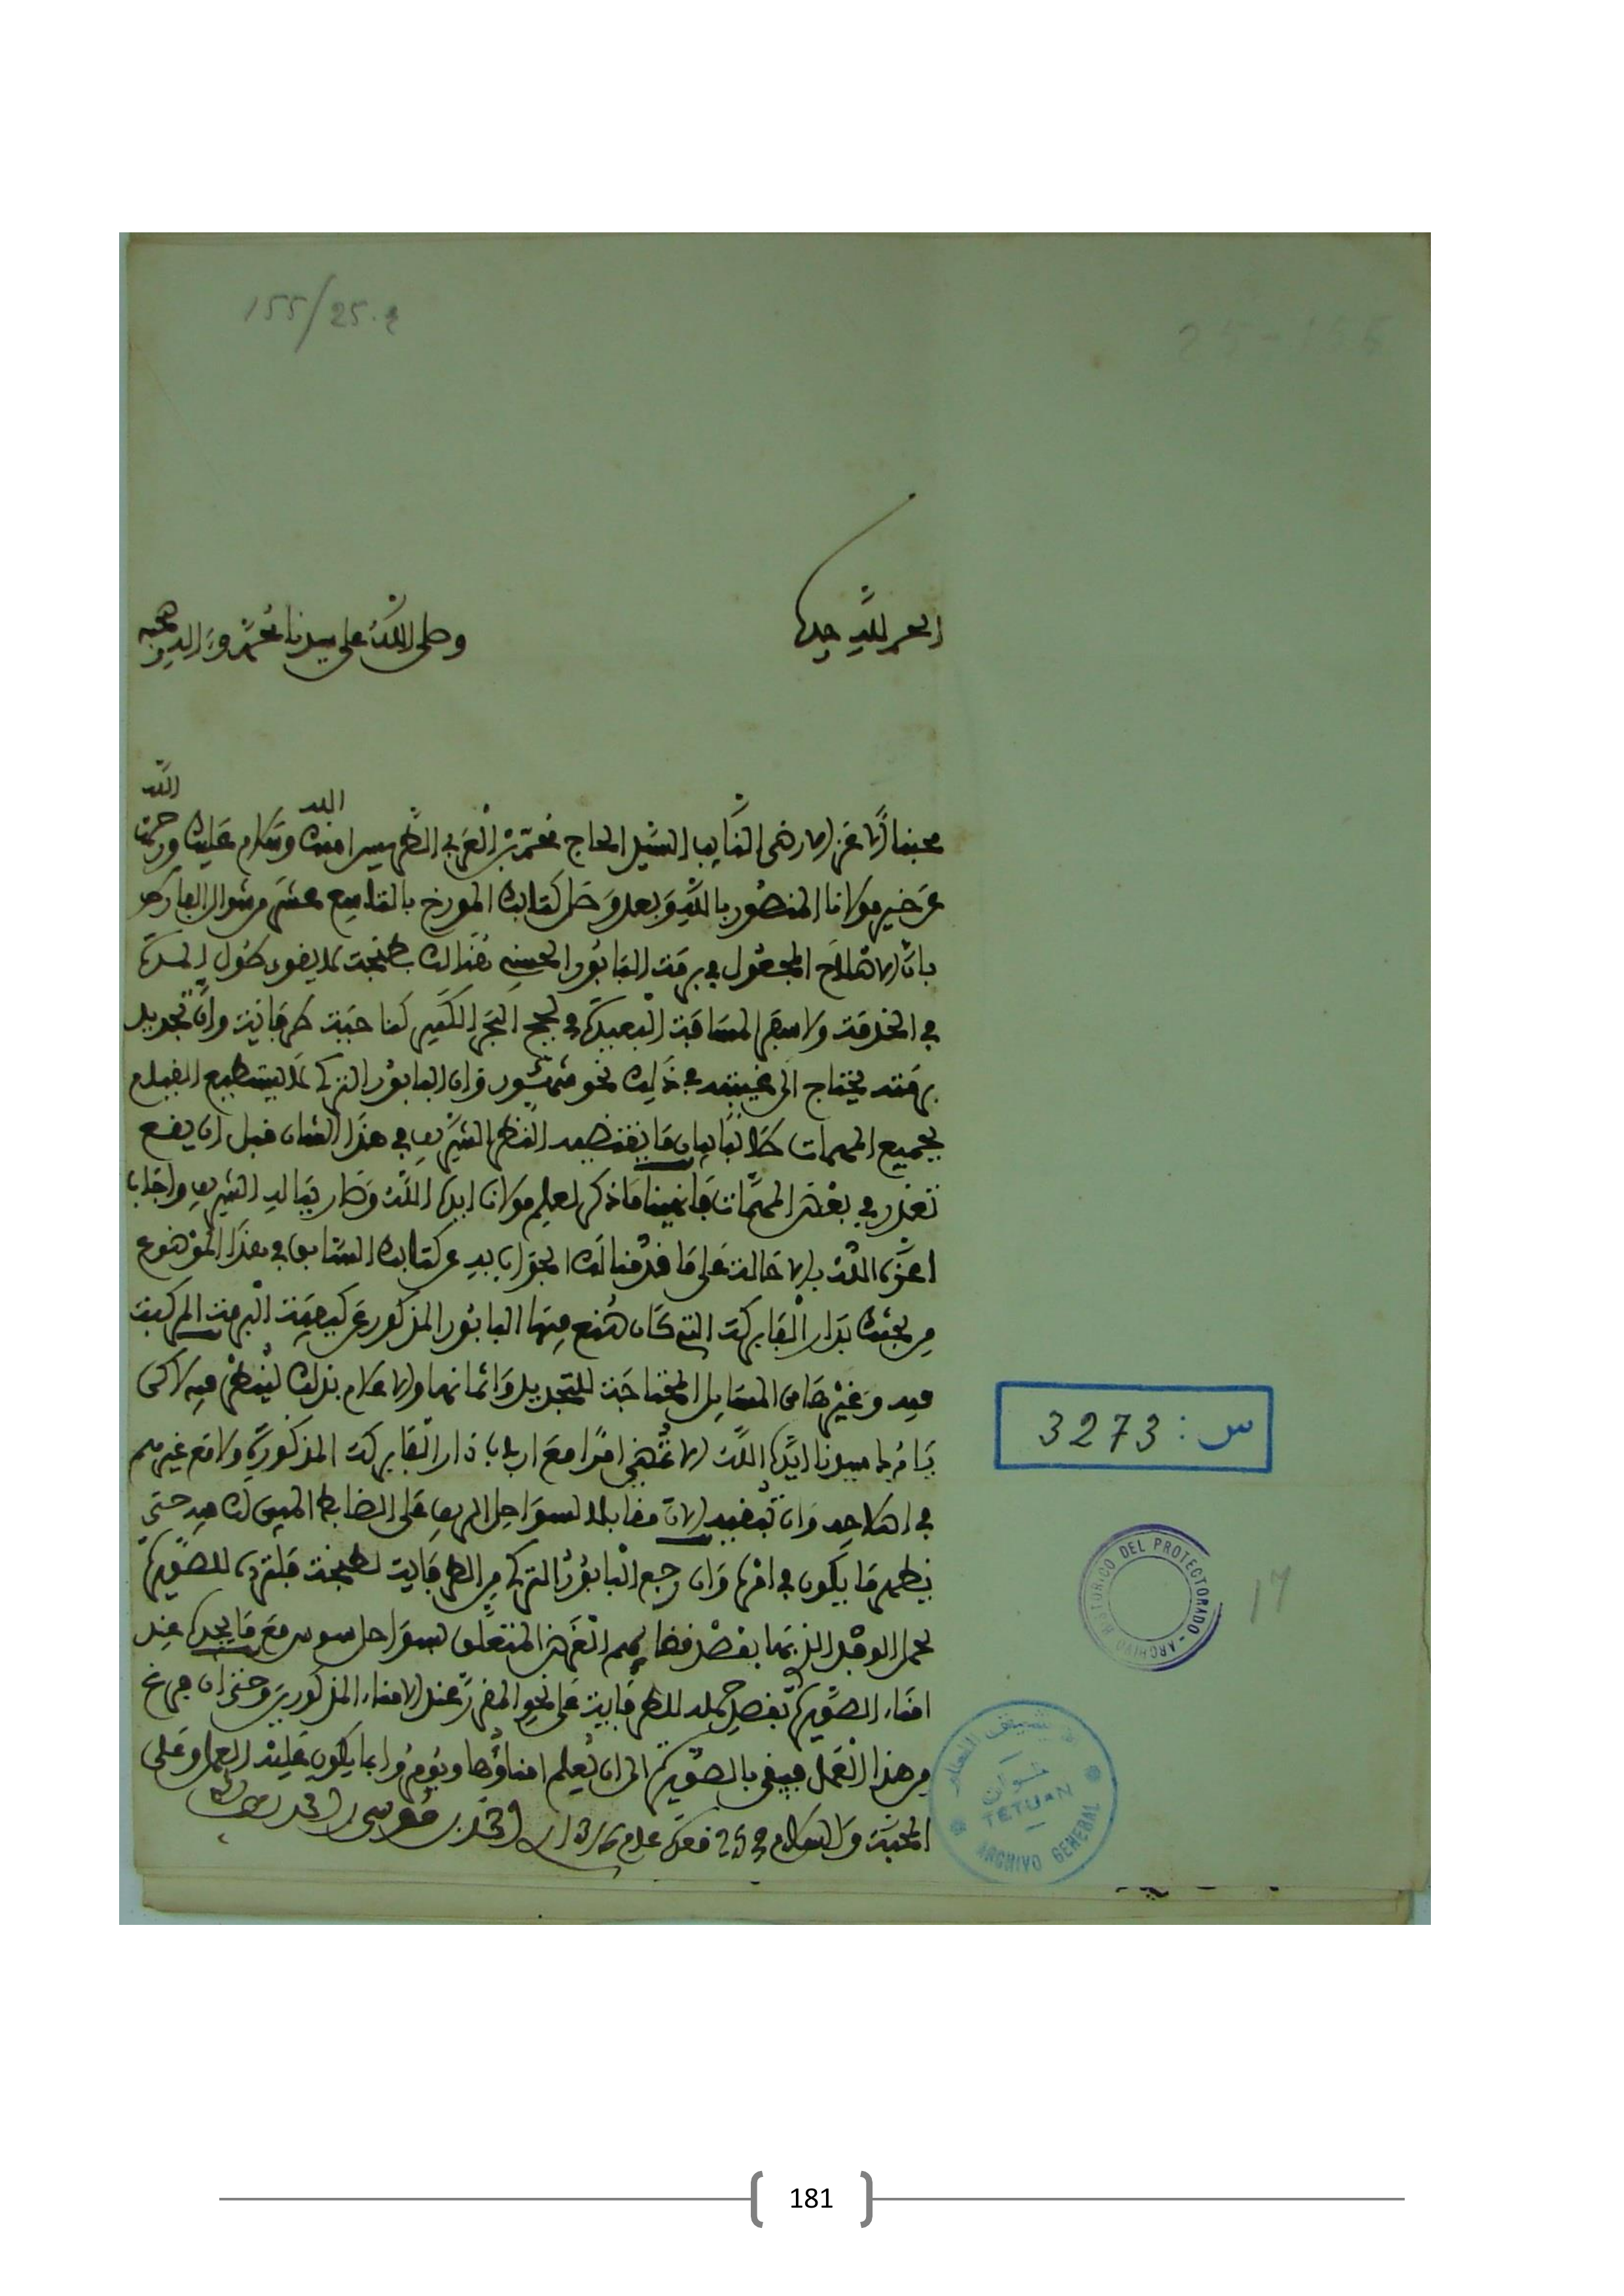 155/25.2
25-156
الحمد لله وحده
وصلى الله على سيدنا محمد وءاله وصحبه
محبنا الأعز الأرضى النايب السيد الحاج محمد بن العربي الطريس امنك الله وسلام عليك ورحمت الله
عن خير مولانا المنصور بالله وبعد وصل كتابك المورخ بالتاسع عشر من شوال الفارط
بأن الاصلاح المجعول في برمة البابور الحسني هنالك بطنجة لا يفيد طول المدة
في الخدمة ولاسيما المسافة البعيدة في لجج البحر الكبير كناحية طرفاية وان تجديد
برمته يحتاج الى غيبته في ذلك نحو شهور وان البابور التركي لا يستطيع القيام
بجميع المهمات طالبا بيان ما يقتضيه النظر الشريف في هذا الشأن قبل ان يقع
تعذر في بعض المهمات فانهينا ما ذكر لعلم مولانا ايده الله وصار بباله الشريف واجاب
اعزه الله بالاحالة على ما قدمنا لك الجواب به عن كتابك السابق في هذا الموضوع
من بحثك بدار الفابركة التي كان صنع منها البابور المذكور عن كيفية البرمة المركبة
فيه وغيرها من المسايل المحتاجة للتجديد واثمانها والاعلام بذلك لينظر فيه لاكن
يامرك سيدنا ايده الله الا تمضي امرا مع ارباب دار الفابركة المذكورة ولا مع غيرهم
في اصلاحه وان تبقيه الان مقابلا لسواحل الريف على الضابط المبين لك فيه حتى
يظهر ما يكون في امره وان رجع البابور التركي من الطرفاية لطنجة فلترده للصويرة
لحمل الوفد الذي بها بقصد قضايهم الغرض المتعلق بسواحل سوس مع ما يجده عند
امناء الصويرة بقصد حمله للطرفاية على نحو المقرر عند الامناء المذكورين وحتى ان فرغ
من هذا العمل فيبقى بالصويرة الى ان يعلم امناؤها ويومروا بما يكون عليه العمل وعلى
المحبة والسلام في 25 قعدة عام
س : 3273
ARCHIVO HISTORICO DEL PROTECTORADO
17
تطوان
TETUAN
ARCHIVO GENERAL
181